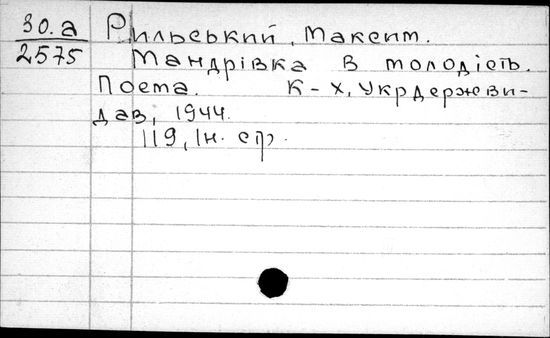 30.а Рильський, Максим.
2575 Мандрівка в молодість.
Поема. К-Х, Укрдержви-
дав, 1944.
119, Ін. стр.